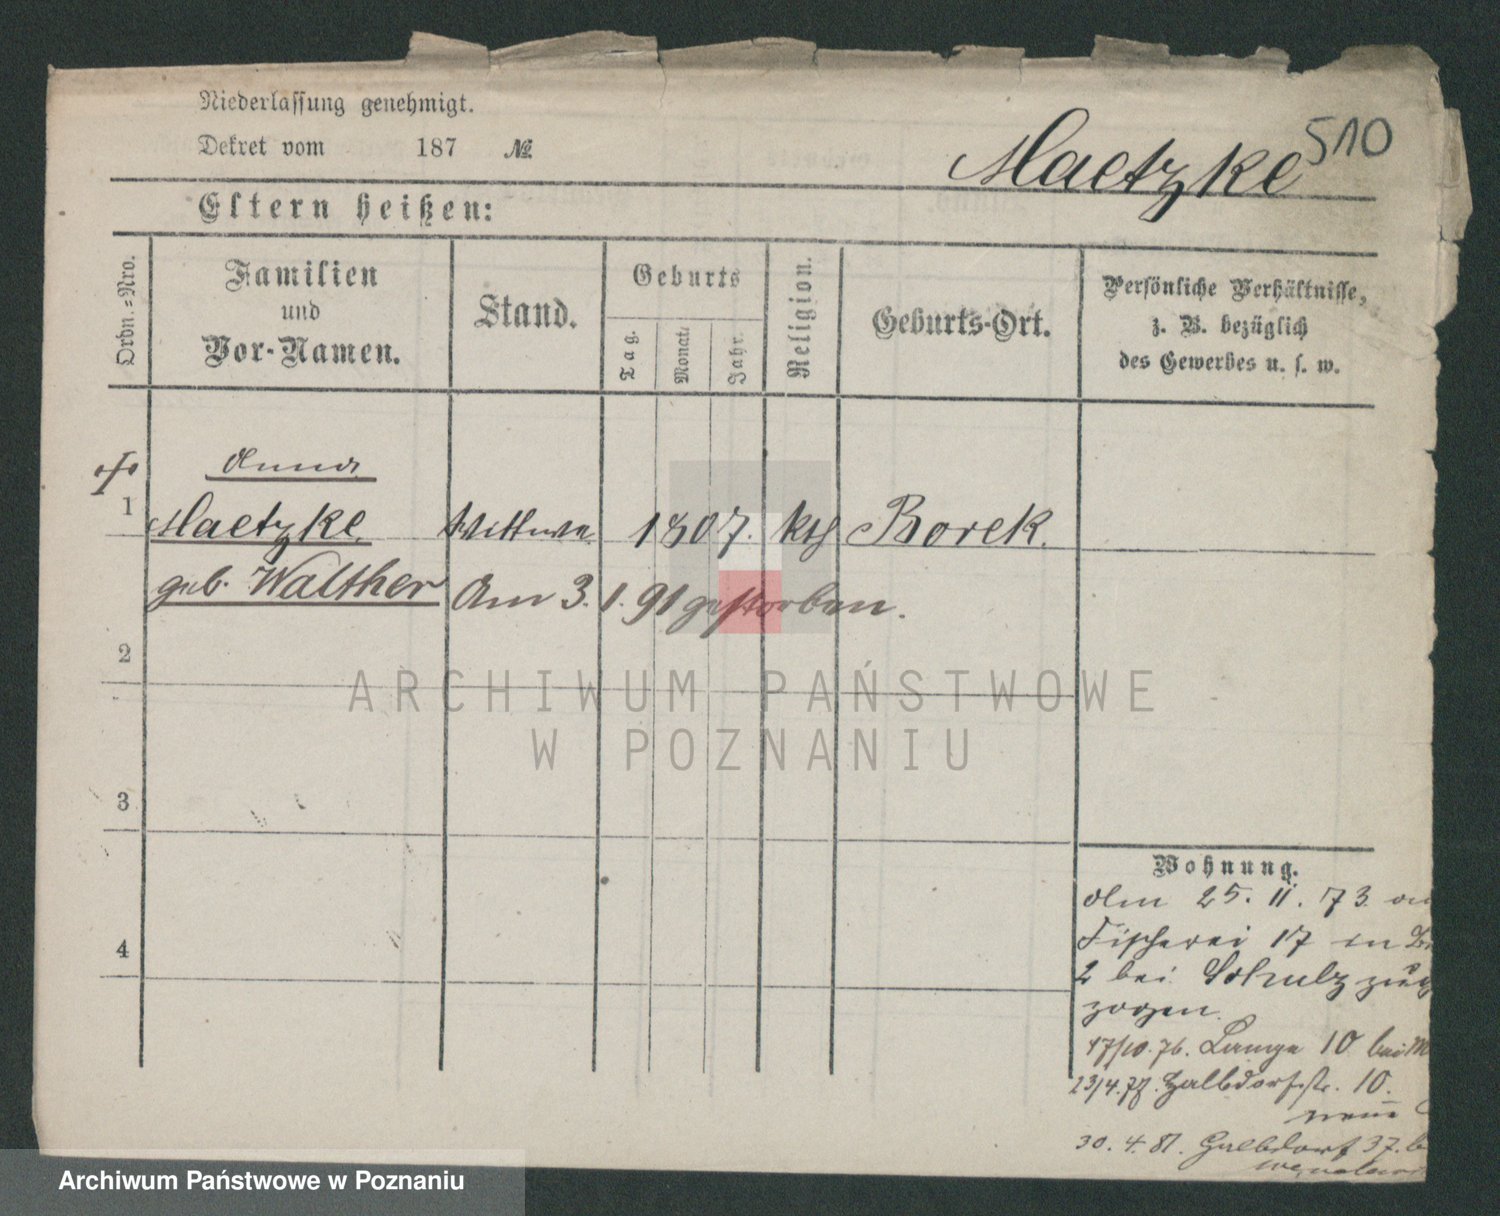 Niederlassung genehmigt.
Dekret vom 187 №
Maetzke 510
Eltern heißen:
Ordn.=Nro.
Familien
und
Vor-Namen.
Stand.
Geburts
Tag.
Monat.
Jahr.
Religion.
Geburts-Ort.
Persönliche Verhältnisse,
z. B. bezüglich
des Gewerbes u. s. w.
Anna
1 Maetzke Wittwe 1807. kth Borek.
geb. Walther Am 3. 1. 91 gestorben.
2
3
4
Wohnung.
Am 25. 11. 73
Fischerei 17 in
2 bei Schulz
zogen.
17/10. 76. Lange 10 bei M
23/4. 77. Halbdorfstr. 10.
neue
30. 4. 81. Halbdorf 37.
ARCHIWUM PAŃSTWOWE
W POZNANIU
Archiwum Państwowe w Poznaniu